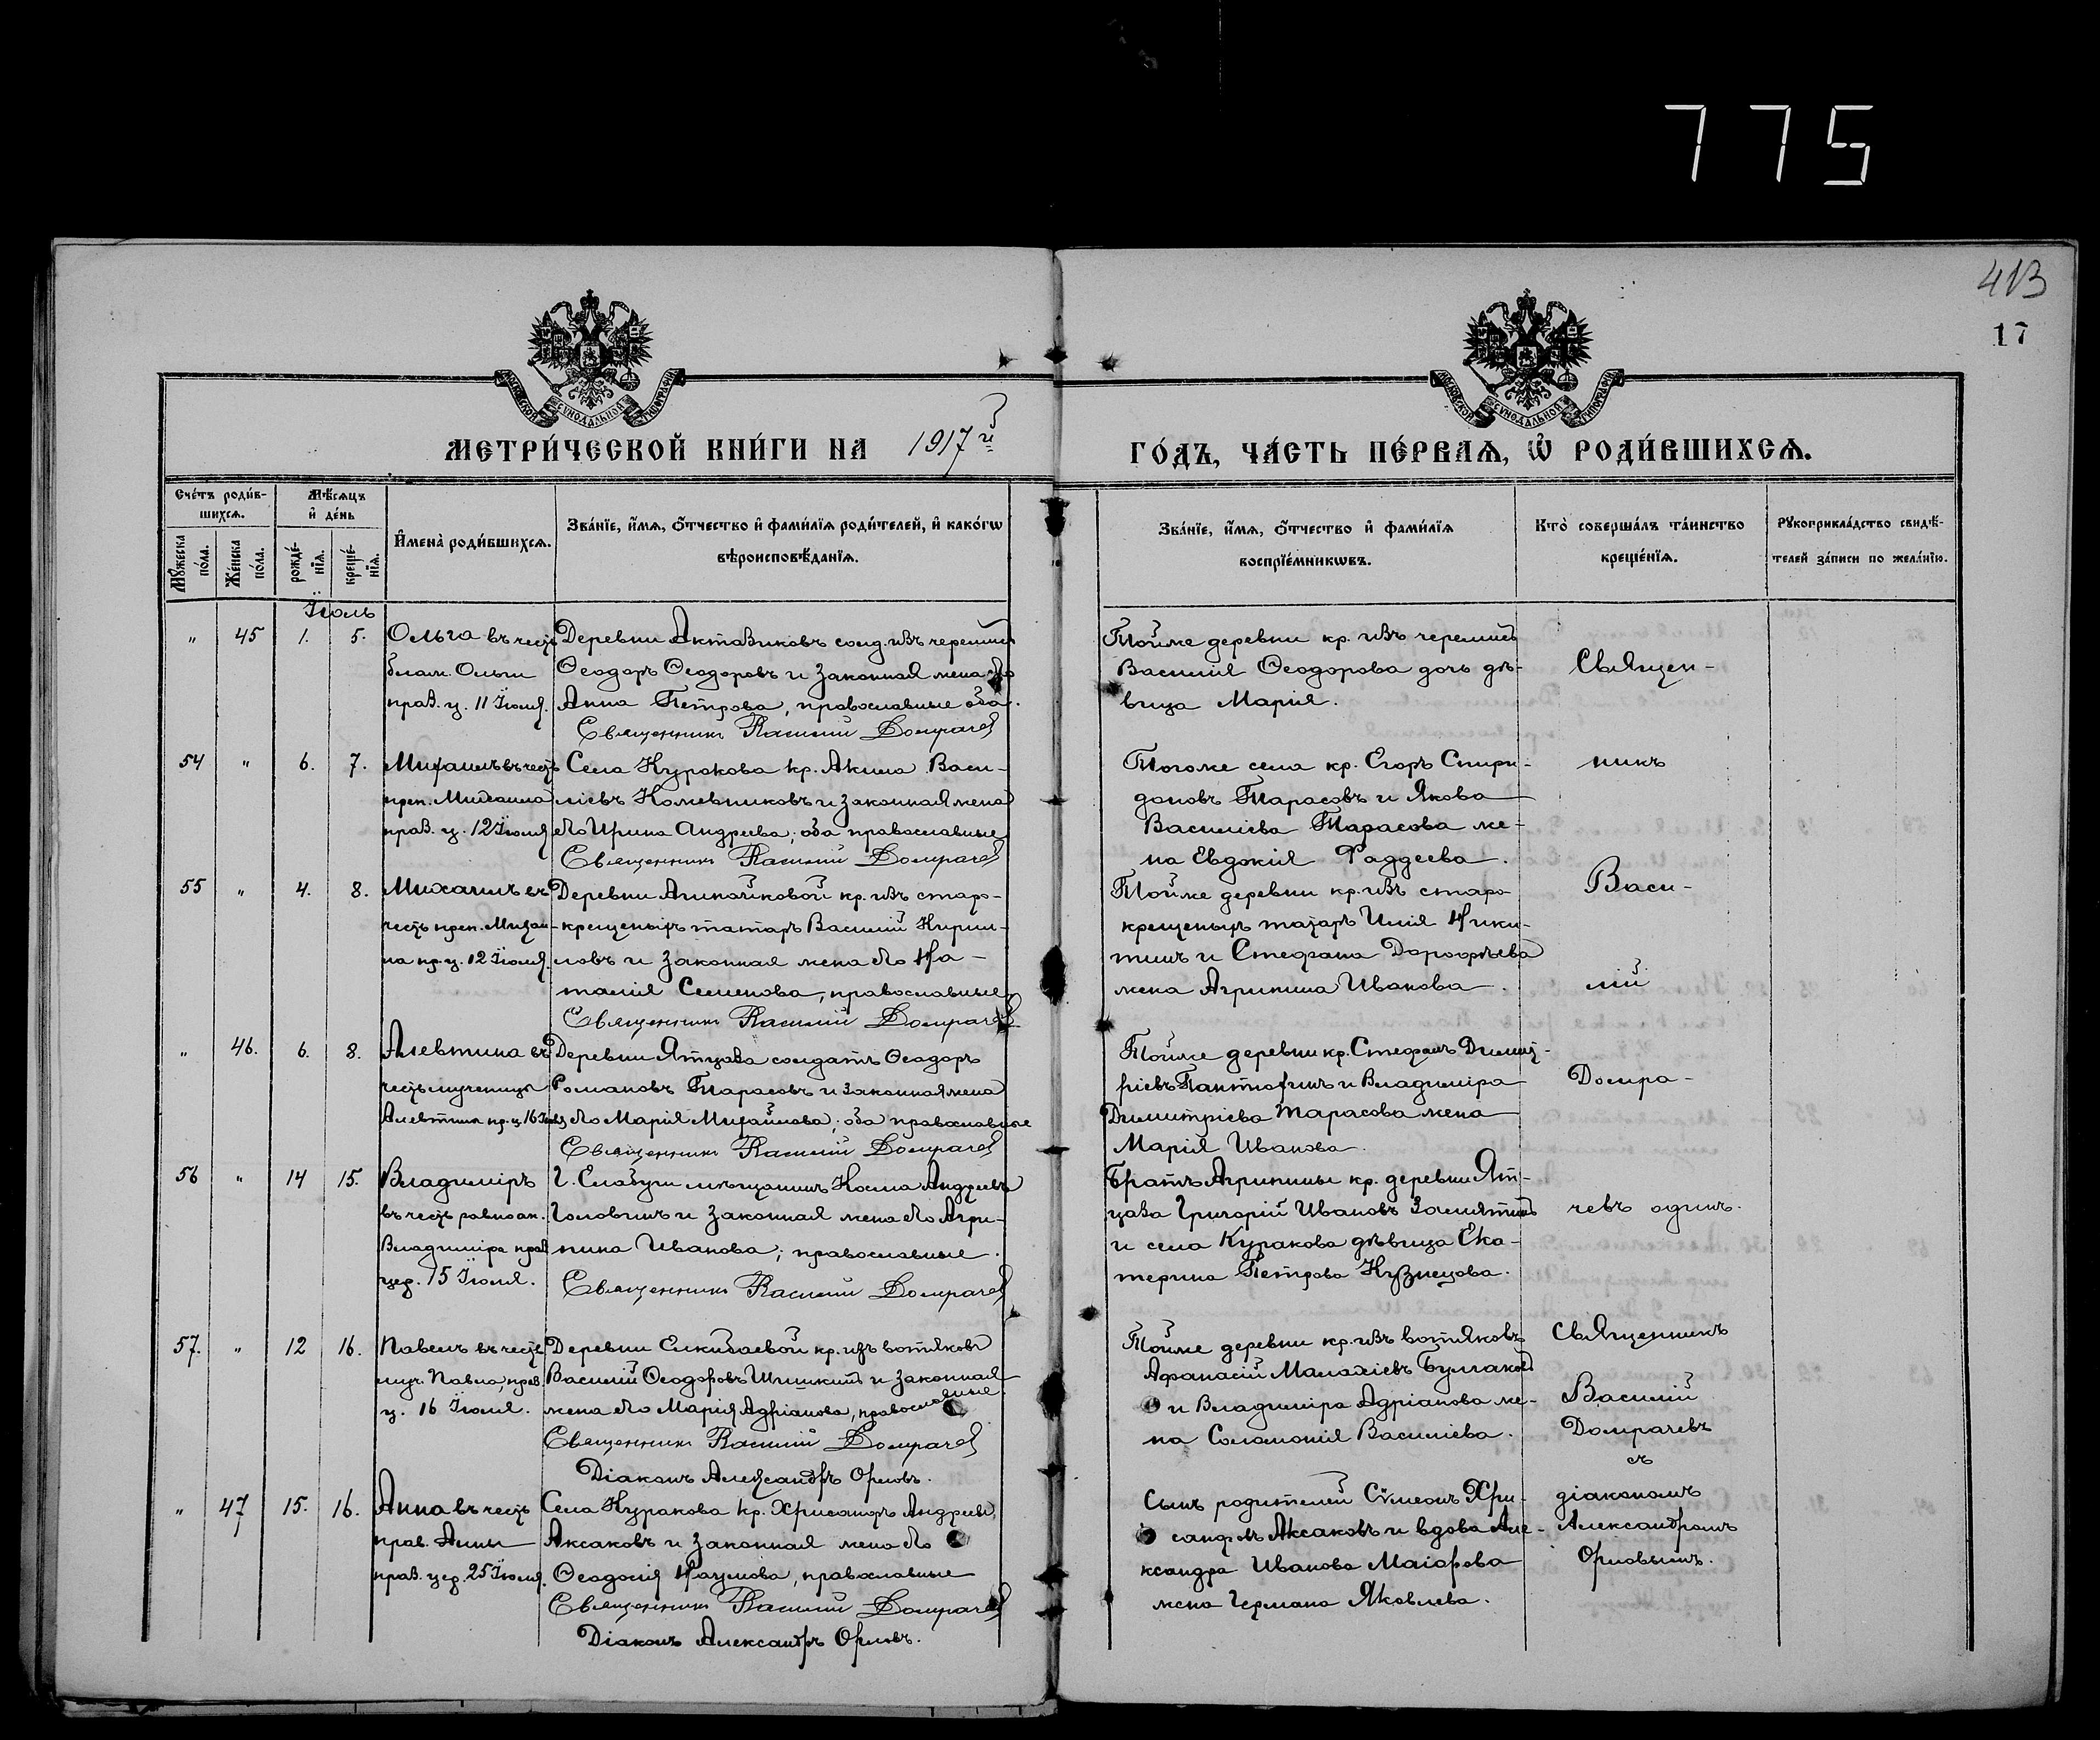 775
413
17
МЕТРИ́ЧЕСКОЙ КНИ́ГИ НА 1917й
ГО́ДЪ, ЧА́СТЬ ПЕ́РВАѦ, Ѿ РОДИ́ВШИХСѦ.
Сче́тъ роди́в-
шихсѧ.
Мѣ́сѧцъ
и҆ де́нь
Мꙋ́жеска по́ла.
Же́нска по́ла.
рожде́-нїѧ.
креще́-нїѧ.
И҆мена̀ роди́вшихсѧ.
Зва́нїе, и҆́мѧ, ѻ҆́тчество и҆ фами́лїѧ роди́телей, и҆ како́гѡ
вѣроисповѣ́данїѧ.
Зва́нїе, и҆́мѧ, ѻ҆́тчество и҆ фами́лїѧ
воспрїе́мникѡвъ.
Кто̀ соверша́лъ та́инство
креще́нїѧ.
Рꙋкоприкла́дство свидѣ́-
телей за́писи по жела́нїю.
Іюль
" 45 1. 5.
Ольга въ честь
благ. Ольги
праз. ц. 11 Іюля.
Деревни Актазиковъ солд. изъ черемисъ
Ѳеодоръ Ѳеодоровъ и законная жена его
Анна Петрова, православные оба.
Священникъ Василій Домрачев
Тойже деревни кр. изъ черемисъ
Василія Ѳеодорова дочь дѣ-
вица Марія.
Священ-
54 " 6. 7.
Михаилъ въ честь
преп. Михаила
праз. ц. 12 Іюля
Села Куракова кр. Акила Васи-
ліевъ Кожевниковъ и законная жена
его Ирина Андреева; оба православные
Священникъ Василій Домрачев
Тогоже села кр. Егоръ Спири-
доновъ Тарасовъ и Якова
Василіева Тарасова же-
на Евдокія Фаддеева.
никъ
55 " 4. 8.
Михаилъ въ
честь преп. Михаи-
ла пр. ц. 12 Іюля.
Деревни Апичайковой кр. изъ старо-
крещеныхъ татаръ Василій Кирил-
ловъ и законная жена его На-
талія Семенова, православные
Священникъ Василій Домрачев
Тойже деревни кр. изъ старо
крещеныхъ татаръ Илія Ники-
тинъ и Стефана Дорофѣева
жена Агрипина Иванова.
Васи-
лій
" 46. 6. 8.
Алевтина въ
честь мученицы
Алевтины пр. ц. 16 Іюля
Деревни Ятцаза солдатъ Ѳеодоръ
Романовъ Тарасовъ и законная жена
его Марія Михайлова; оба православные
Священникъ Василій Домрачев
Тойже деревни кр. Стефанъ Димит-
ріевъ Пантюхинъ и Владиміра
Димитріева Тарасова жена
Марія Иванова.
Домра-
56 " 14 15.
Владиміръ
въ честь равноап.
Владиміра праз
цер. 15 Іюля.
Г. Елабуги мѣщанинъ Косма Андреевъ
Головинъ и законная жена его Агри-
пина Иванова; православные.
Священникъ Василій Домрачев
Братъ Агрипины кр. деревни Ят-
цаза Григорій Ивановъ Замятинъ
и села Куракова дѣвица Ека-
терина Петрова Кузнецова.
чевъ одинъ.
57. " 12 16.
Павелъ въ честь
муч. Павла, праз.
ц. 16 Іюля.
Деревни Елкибаевой кр. изъ вотяковъ
Василій Ѳеодоровъ Шишкинъ и законная
жена его Марія Адріанова, православные.
Священникъ Василій Домрачев
Діаконъ Александръ Орловъ.
Тойже деревни кр. изъ вотяковъ
Афанасій Малахіевъ Булгаковъ
и Владиміра Адріанова же-
на Соломонія Василіева.
Священникъ
Василій
Домрачевъ
съ
" 47 15. 16.
Анна въ честь
прав. Анны
праз. цер. 25 Іюля.
Села Куракова кр. Хрисанфъ Андреевъ
Аксаковъ и законная жена его
Ѳеодосія Наумова, православные
Священникъ Василій Домрачев
Діаконъ Александръ Орловъ.
Сынъ родителей Сѵмеонъ Хри-
санфовъ Аксаковъ и вдова Але-
ксандра Иванова Маіорова
жена Германа Яковлева.
діакономъ
Александромъ
Орловымъ.